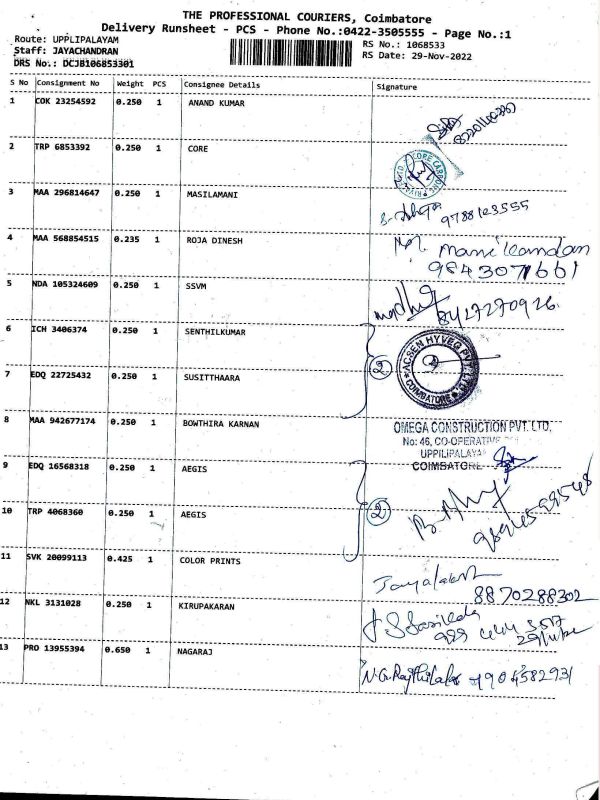 THE PROFESSIONAL COURIERS, Coimbatore
Delivery Runsheet - PCS - Phone No.:0422-3505555 - Page No.:1
Route: UPPLIPALAYAM
RS No.: 1068533
Staff: JAYACHANDRAN
RS Date: 29-Nov-2022
DRS No.: DCJB106853301
S No Consignment No Weight PCS Consignee Details Signature
1 COK 23254592 0.250 1 ANAND KUMAR
2 TRP 6853392 0.250 1 CORE
3 MAA 296814647 0.250 1 MASILAMANI
9788123555
4 MAA 568854515 0.235 1 ROJA DINESH
Manikandan
9843071661
5 NDA 105324609 0.250 1 SSVM
8427270926
6 ICH 3406374 0.250 1 SENTHILKUMAR
2
ACSEN HYVEG PVT. LTD
COIMBATORE
7 EDQ 22725432 0.250 1 SUSITTHAARA
8 MAA 942677174 0.250 1 BOWTHIRA KARNAN
OMEGA CONSTRUCTION PVT. LTD,
No: 46, CO-OPERATIVE
UPPILIPALAYA
COIMBATORE
9 EDQ 16568318 0.250 1 AEGIS
2
10 TRP 4068360 0.250 1 AEGIS
11 SVK 20099113 0.425 1 COLOR PRINTS
8870288302
12 NKL 3131028 0.250 1 KIRUPAKARAN
13 PRO 13955394 0.650 1 NAGARAJ
7904582931